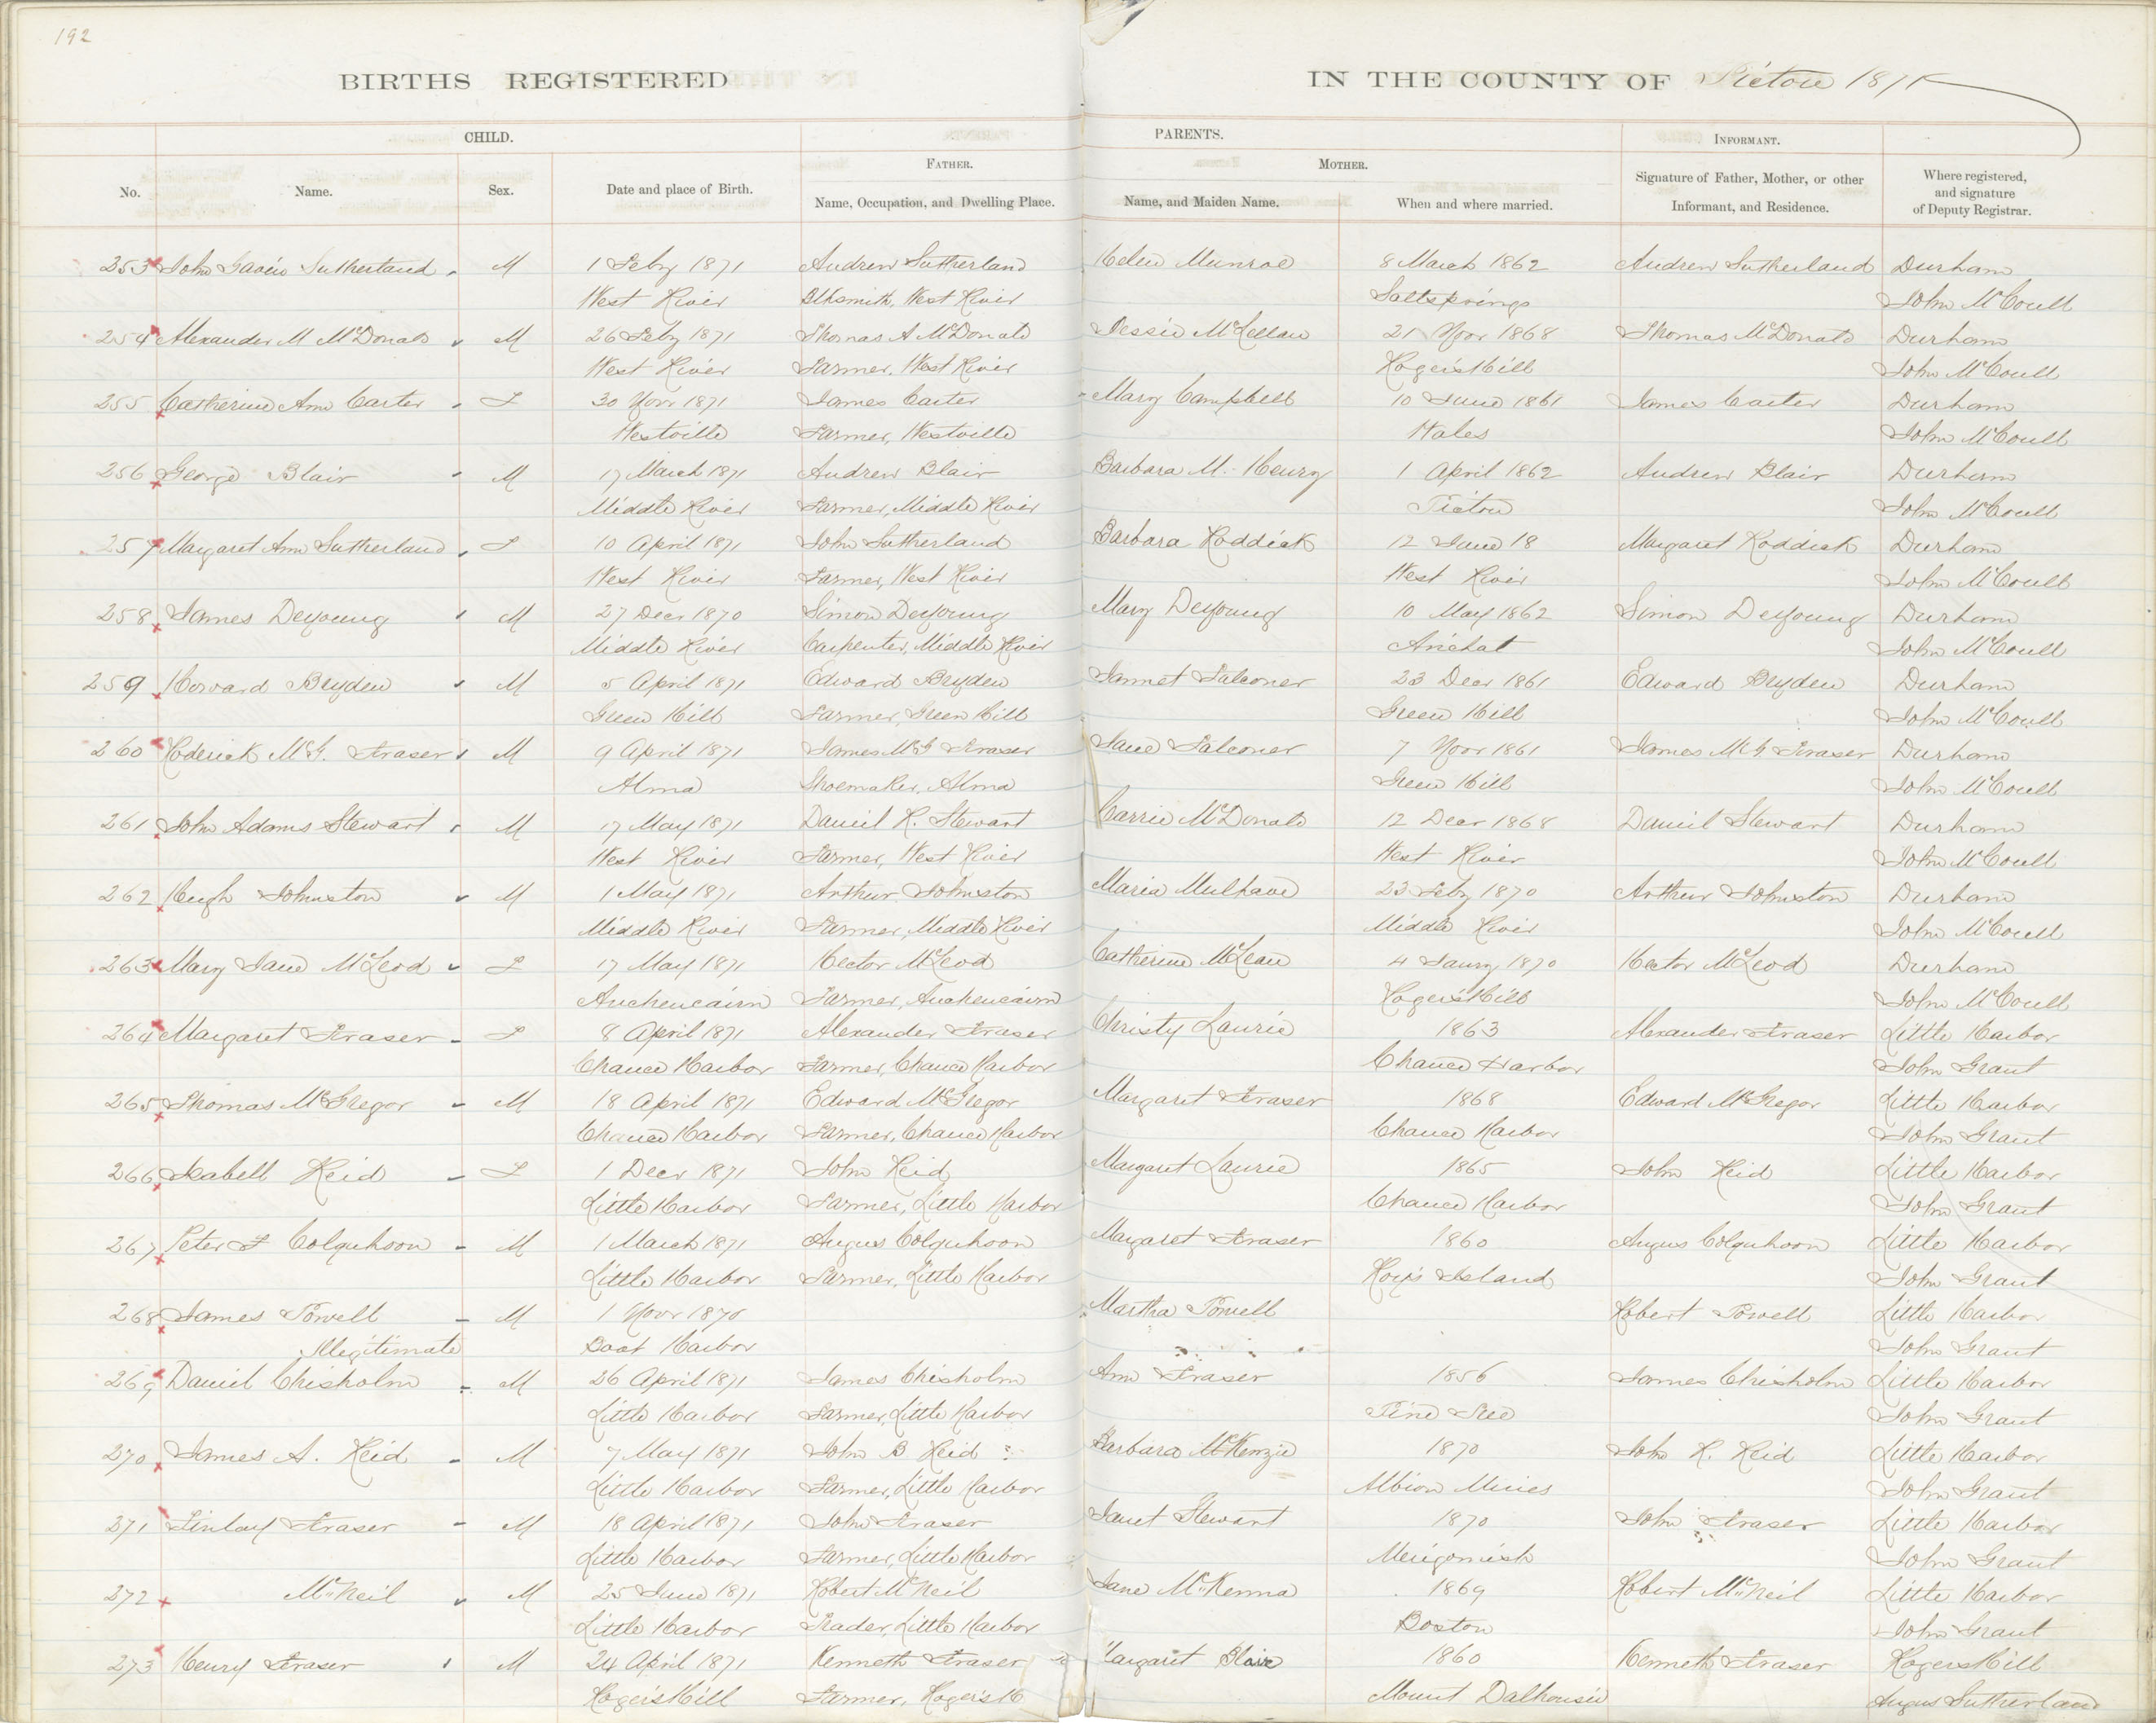 192
BIRTHS REGISTERED IN THE COUNTY OF Pictou 1871
CHILD. PARENTS. INFORMANT.
FATHER. MOTHER.
No. Name. Sex. Date and place of Birth. Name, Occupation, and Dwelling Place. Name, and Maiden Name. When and where married. Signature of Father, Mother, or other Informant, and Residence. Where registered, and signature of Deputy Registrar.
253 John Gavin Sutherland M 1 Feby 1871 Andrew Sutherland Helen Munroe 8 March 1862 Andrew Sutherland Durham
West River Blksmith, West River Saltsprings John McCoull
254 Alexander M McDonald M 26 Feby 1871 Thomas A McDonald Jessie McLellan 21 Novr 1868 Thomas McDonald Durham
West River Farmer, West River Roger's Hill John McCoull
255 Catherine Ann Carter F 30 Novr 1871 James Carter Mary Campbell 10 June 1861 James Carter Durham
Westville Farmer, Westville Wales John McCoull
256 George Blair M 17 March 1871 Andrew Blair Barbara M. Henry 1 April 1862 Andrew Blair Durham
Middle River Farmer, Middle River Pictou John McCoull
257 Margaret Ann Sutherland F 10 April 1871 John Sutherland Barbara Roddick 12 June 18 Margaret Roddick Durham
West River Farmer, West River West River John McCoull
258 James Deyoung M 27 Decr 1870 Simon Deyoung Mary Deyoung 10 May 1862 Simon Deyoung Durham
Middle River Carpenter, Middle River Arichat John McCoull
259 Howard Bryden M 5 April 1871 Edward Bryden Jannet Falconer 23 Decr 1861 Edward Bryden Durham
Green Hill Farmer, Green Hill Green Hill John McCoull
260 Roderick McG. Fraser M 9 April 1871 James McG Fraser Jane Falconer 7 Novr 1861 James McG Fraser Durham
Alma Shoemaker, Alma Green Hill John McCoull
261 John Adams Stewart M 17 May 1871 Daniel R. Stewart Carrie McDonald 12 Decr 1868 Daniel Stewart Durham
West River Farmer, West River West River John McCoull
262 Hugh Johnston M 1 May 1871 Arthur Johnston Maria Mulhave 23 Feby 1870 Arthur Johnston Durham
Middle River Farmer, Middle River Middle River John McCoull
263 Mary Jane McLeod F 17 May 1871 Hector McLeod Catherine McLean 4 Jany 1870 Hector McLeod Durham
Auchencairn Farmer, Auchencairn Roger's Hill John McCoull
264 Margaret Fraser F 8 April 1871 Alexander Fraser Christy Laurie 1863 Alexander Fraser Little Harbor
Chance Harbor Farmer, Chance Harbor Chance Harbor John Grant
265 Thomas McGregor M 18 April 1871 Edward McGregor Margaret Fraser 1868 Edward McGregor Little Harbor
Chance Harbor Farmer, Chance Harbor Chance Harbor John Grant
266 Isabell Reid F 1 Decr 1871 John Reid Margaret Laurie 1865 John Reid Little Harbor
Little Harbor Farmer, Little Harbor Chance Harbor John Grant
267 Peter F Colquhoon M 1 March 1871 Angus Colquhoon Margaret Fraser 1860 Angus Colquhoon Little Harbor
Little Harbor Farmer, Little Harbor Roy's Island John Grant
268 James Powell M 1 Novr 1870 Martha Powell Robert Powell Little Harbor
Illegitimate Boat Harbor John Grant
269 Daniel Chisholm M 26 April 1871 James Chisholm Ann Fraser 1856 James Chisholm Little Harbor
Little Harbor Farmer, Little Harbor Pine Tree John Grant
270 James A. Reid M 7 May 1871 John B Reid Barbara McKenzie 1870 John R. Reid Little Harbor
Little Harbor Farmer, Little Harbor Albion Mines John Grant
271 Finlay Fraser M 18 April 1871 John Fraser Janet Stewart 1870 John Fraser Little Harbor
Little Harbor Farmer, Little Harbor Merigomish John Grant
272 McNeil M 25 June 1871 Robert McNeil Jane McKenna 1869 Robert McNeil Little Harbor
Little Harbor Trader, Little Harbor Boston John Grant
273 Henry Fraser M 24 April 1871 Kenneth Fraser Margaret Blair 1860 Kenneth Fraser Roger's Hill
Roger's Hill Farmer, Roger's H Mount Dalhousie Angus Sutherland